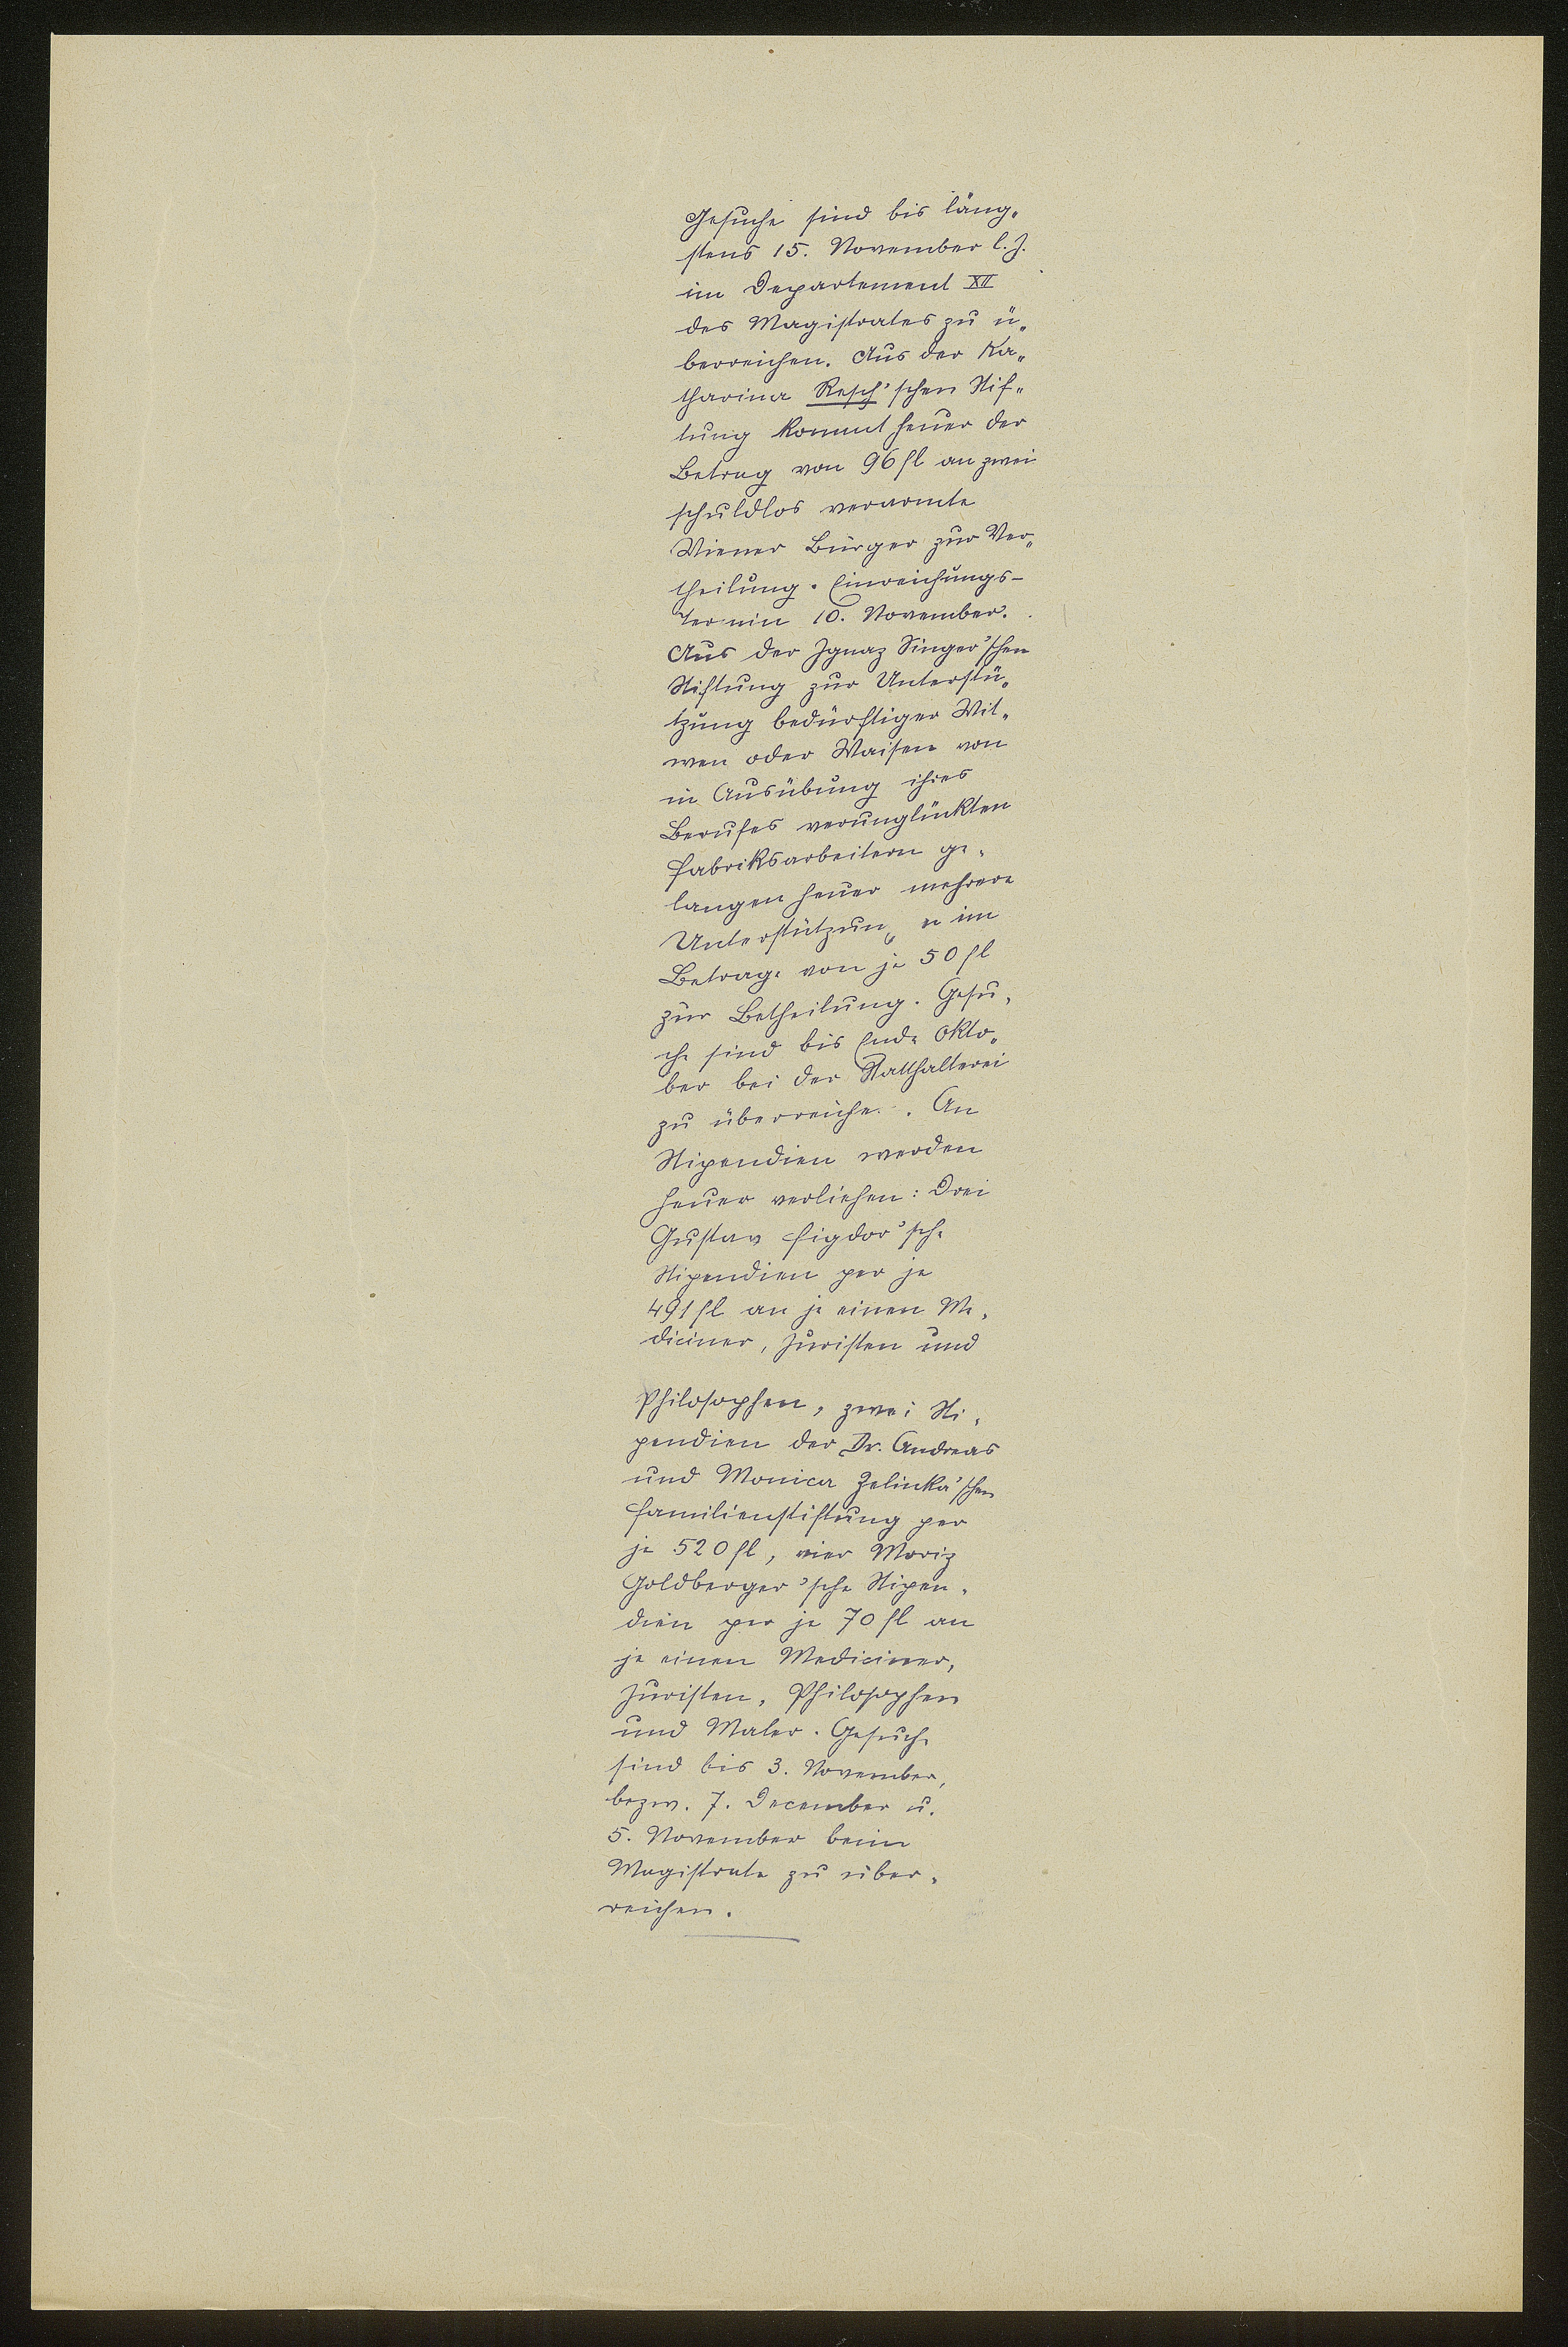 Gesuche sind bis läng„
stens 15. November l. J.
im Departement XII
des Magistrates zu ü„
berreichen. Aus der Ka„
tharina Resch'schen Stif„
tung kommt heuer der
Betrag von 96 fl an zwei
schuldlos verarmte
Wiener Bürger zur Ver„
theilung. Einreichungs-
Termin 10. November.
Aus der Ignaz Singer'schen
Stiftung zur Unterstü„
tzung bedürftiger Wit„
wen oder Waisen von
in Ausübung ihres
Berufes verunglückten
Fabriksarbeitern ge„
langen heuer mehrere
Unterstützungen im
Betrage von je 50 fl
zur Betheilung. Gesu„
che sind bis Ende Okto„
ber bei der Statthalterei
zu überreichen. An
Stipendien werden
heuer verliehen: Drei
Gustav Figdor'sche
Stipendien per je
491 fl an je einen Me„
diciner, Juristen und
Philosophen, zwei Sti„
pendien der Dr. Andreas
und Monica Zelinka'schen
Familienstiftung per
je 520 fl, vier Moriz
Goldberger'sche Stipen„
dien per je 70 fl an
je einen Mediciner,
Juristen, Philosophen
und Maler. Gesuche
sind bis 3. November,
bezw. 7. December u.
5. November beim
Magistrate zu über„
reichen.